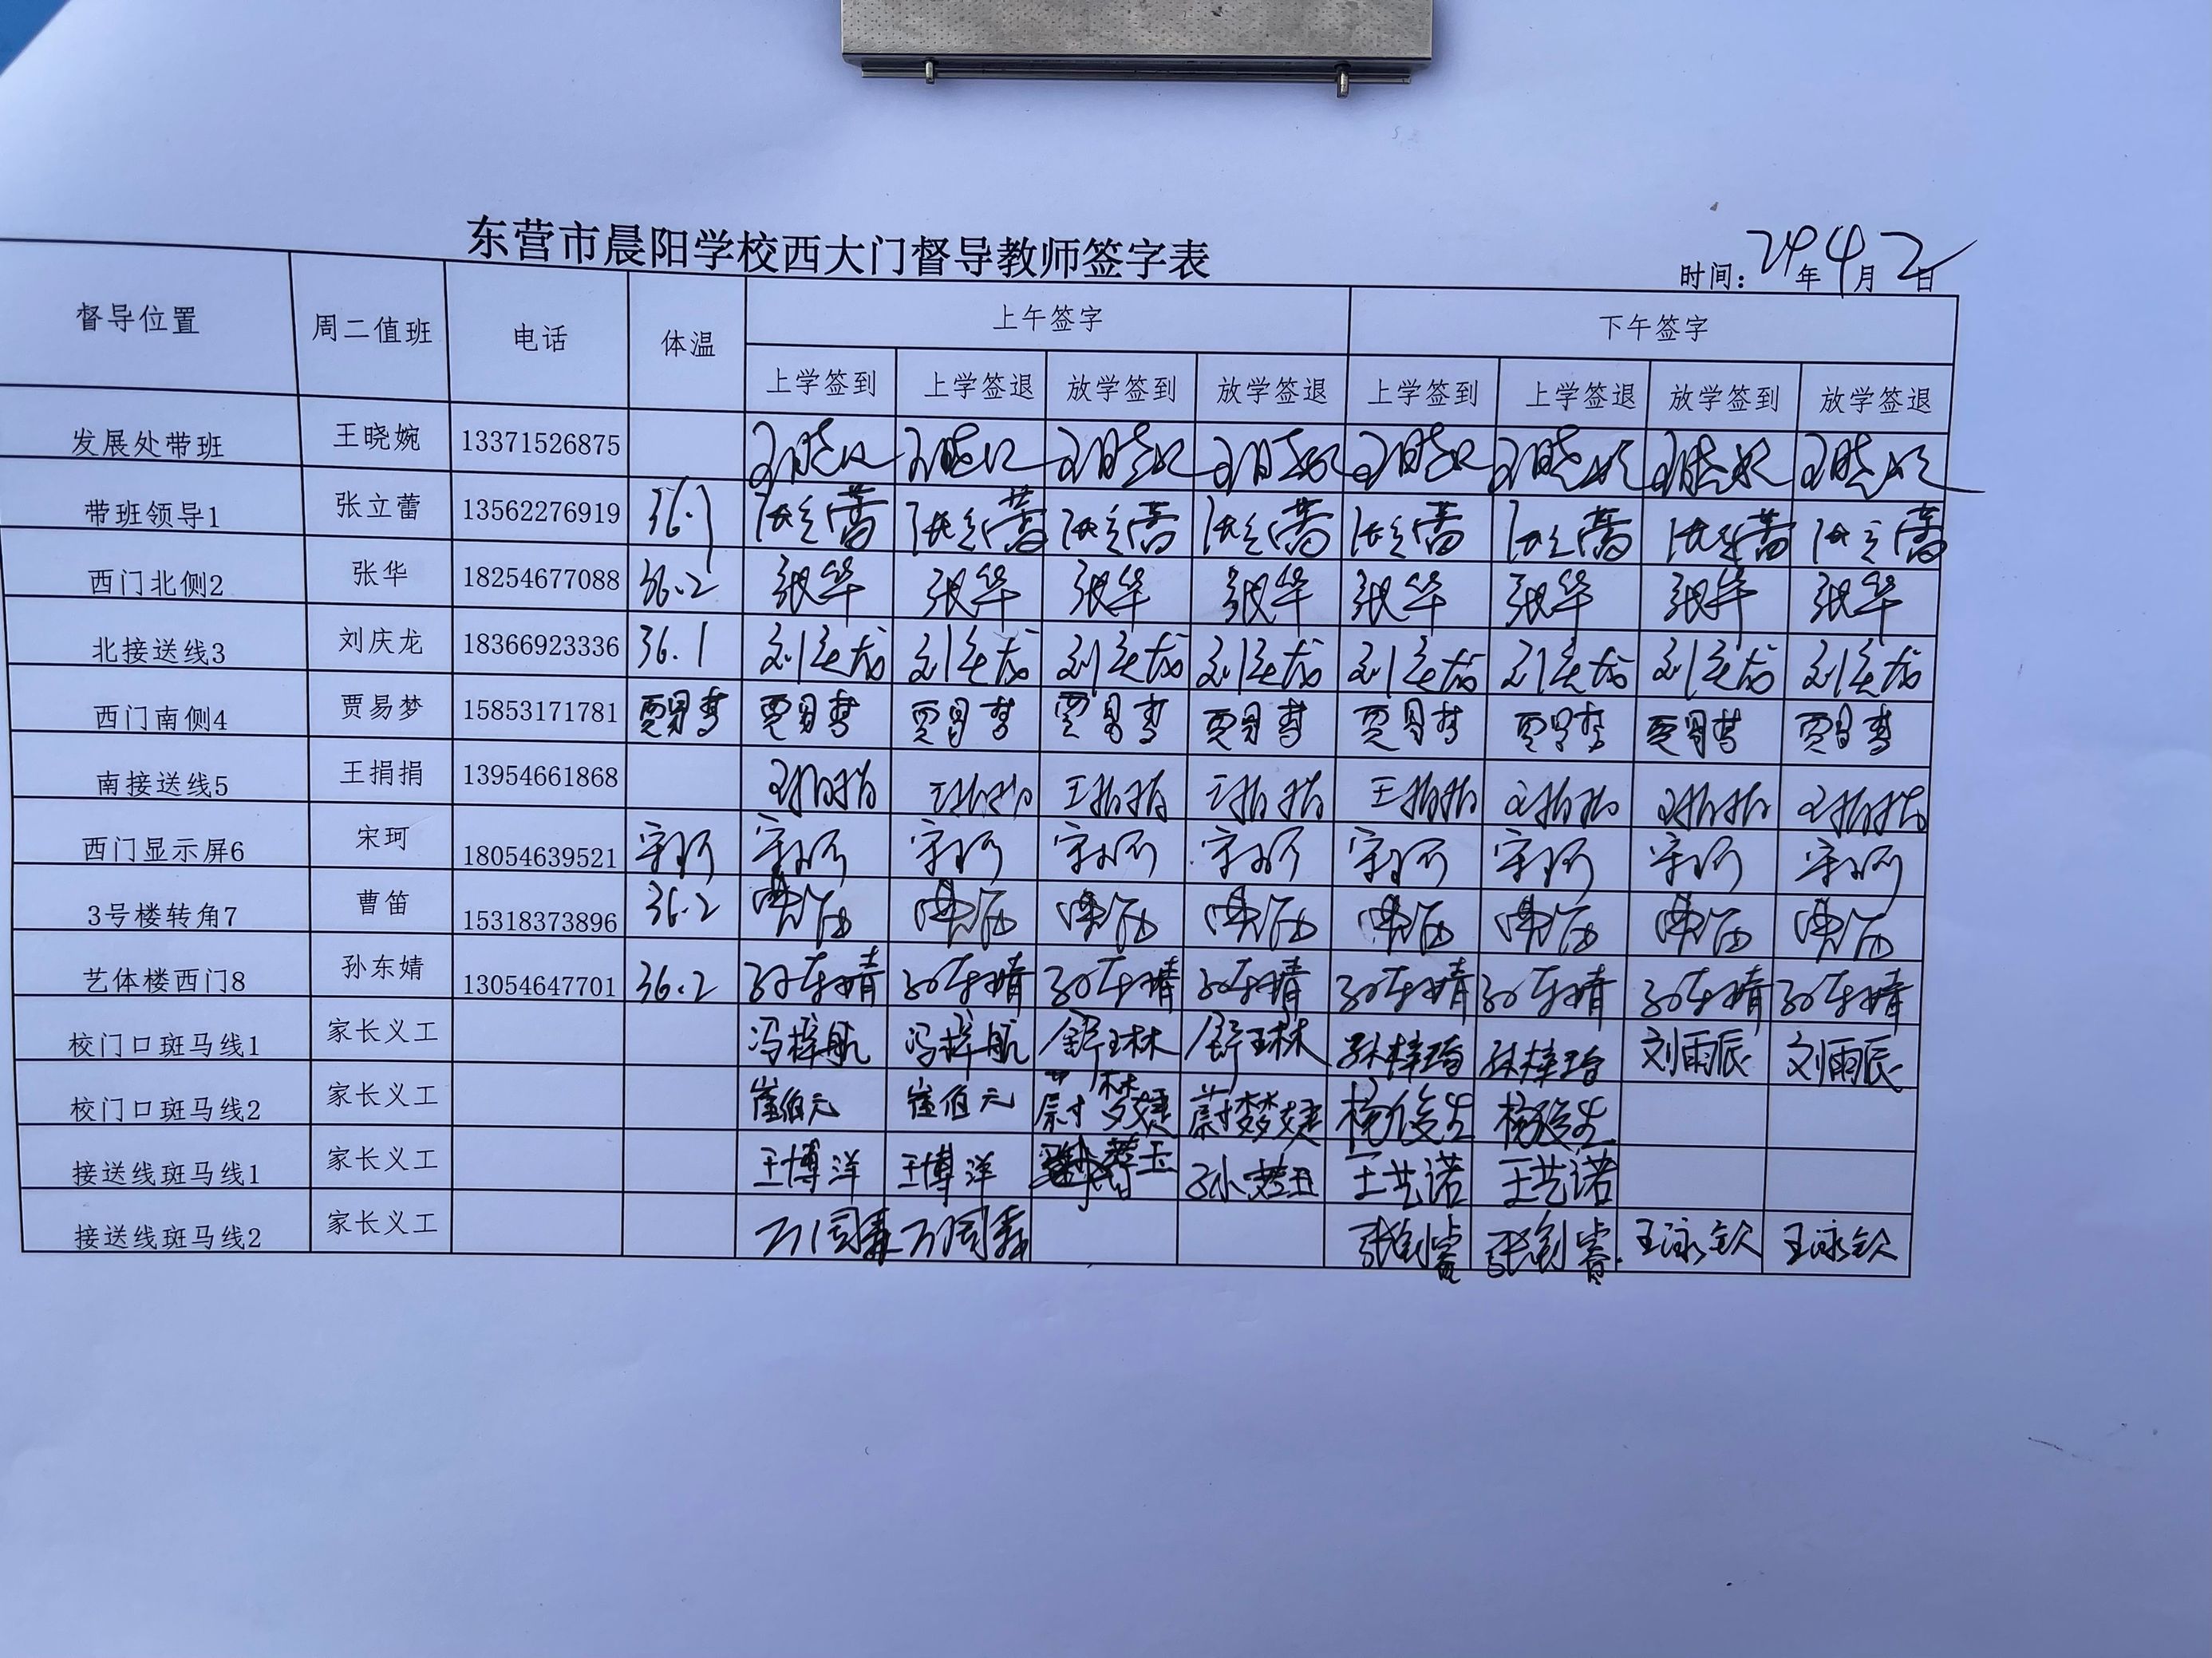 东营市晨阳学校西大门督导教师签字表
时间：24年4月2日
督导位置 周二值班 电话 体温 上午签字 下午签字
上学签到 上学签退 放学签到 放学签退 上学签到 上学签退 放学签到 放学签退
发展处带班 王晓婉 13371526875 王晓婉 王晓婉 王晓婉 王晓婉 王晓婉 王晓婉 王晓婉 王晓婉
带班领导1 张立蕾 13562276919 张立蕾 张立蕾 张立蕾 张立蕾 张立蕾 张立蕾 张立蕾 张立蕾
西门北侧2 张华 18254677088 36.2 张华 张华 张华 张华 张华 张华 张华 张华
北接送线3 刘庆龙 18366923336 36.1 刘庆龙 刘庆龙 刘庆龙 刘庆龙 刘庆龙 刘庆龙 刘庆龙 刘庆龙
西门南侧4 贾易梦 15853171781 贾易梦 贾易梦 贾易梦 贾易梦 贾易梦 贾易梦 贾易梦 贾易梦 贾易梦
南接送线5 王捐捐 13954661868 王捐捐 王捐捐 王捐捐 王捐捐 王捐捐 王捐捐 王捐捐 王捐捐
西门显示屏6 宋珂 18054639521 宋珂 宋珂 宋珂 宋珂 宋珂 宋珂 宋珂 宋珂 宋珂
3号楼转角7 曹笛 15318373896 36.2 曹笛 曹笛 曹笛 曹笛 曹笛 曹笛 曹笛 曹笛
艺体楼西门8 孙东婧 13054647701 36.2 孙东婧 孙东婧 孙东婧 孙东婧 孙东婧 孙东婧 孙东婧 孙东婧
校门口斑马线1 家长义工 冯梓航 冯梓航 舒玉林 舒玉林 刘雨辰 刘雨辰
校门口斑马线2 家长义工 崔伯元 崔伯元 蔚梦婕 蔚梦婕 杨俊生 杨俊生
接送线斑马线1 家长义工 王博洋 王博洋 王艺诺 王艺诺
接送线斑马线2 家长义工 张剑睿 张剑睿 王泳钦 王泳钦